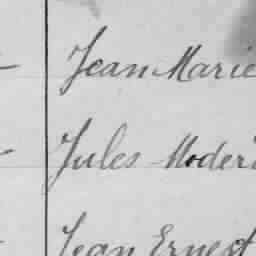 Jean Marie
Jules Moder
Jean Ernest